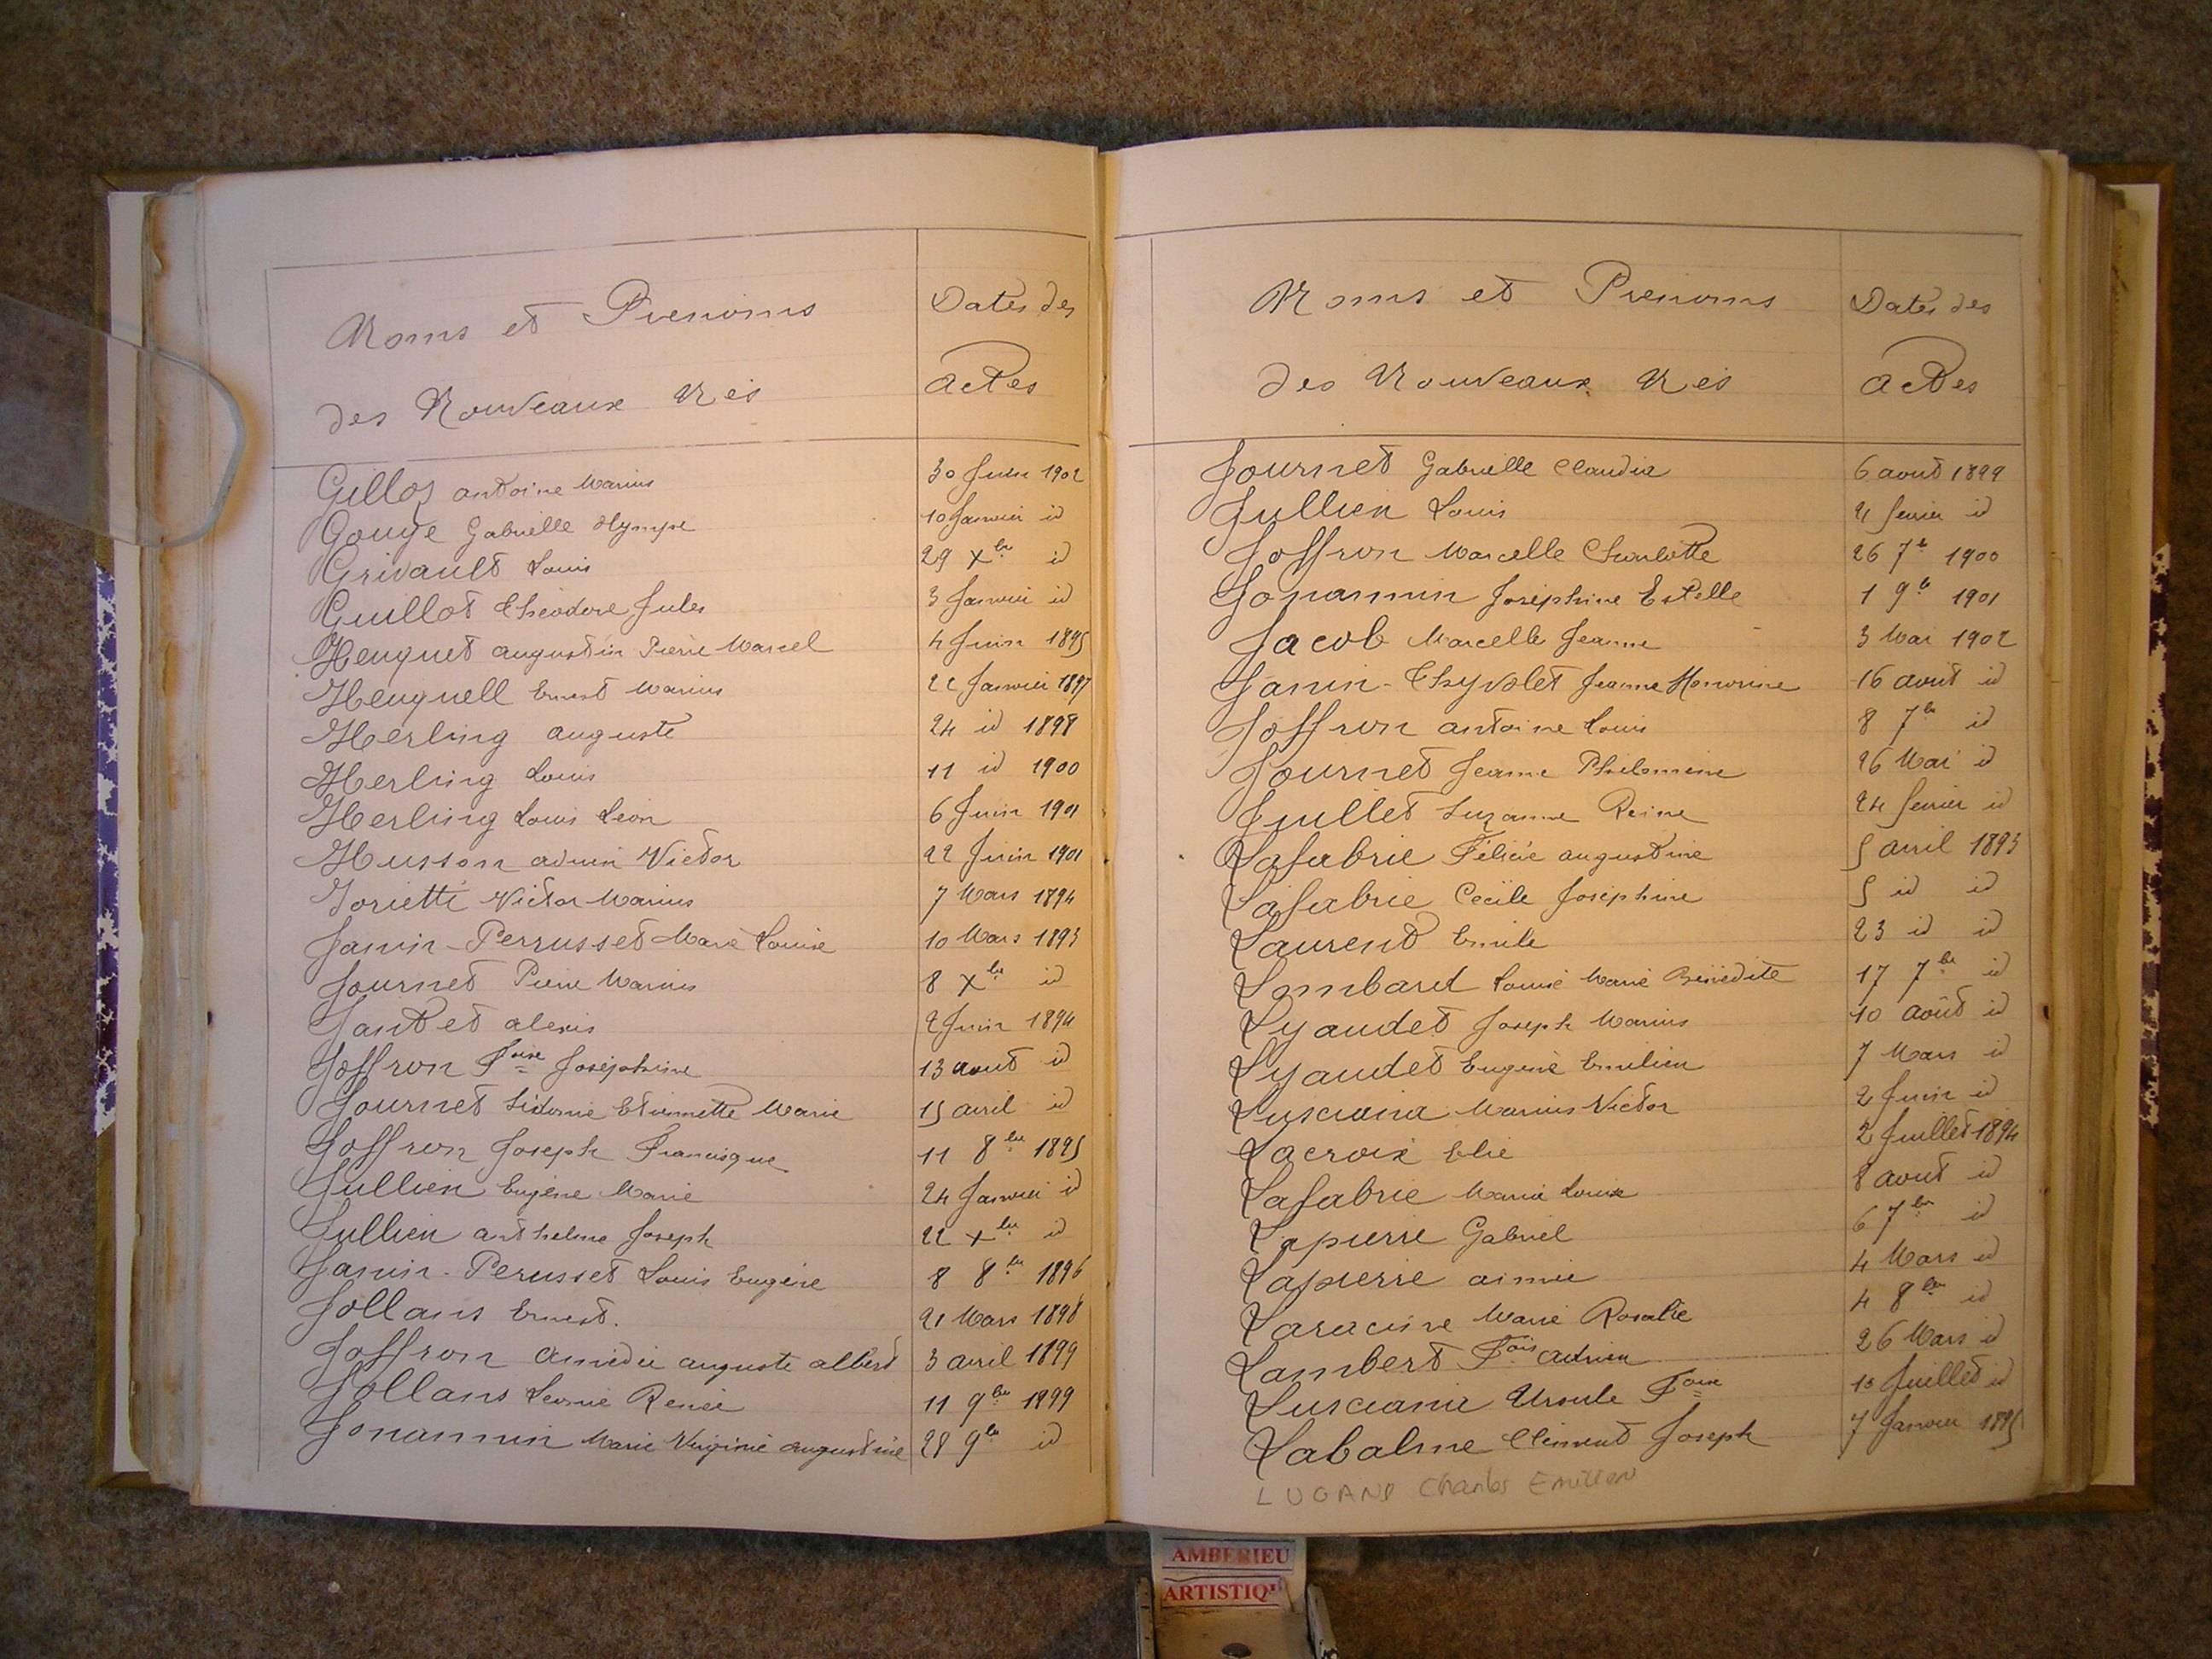 Noms et Prenoms
des Nouveaux Nés
Dates des
Actes
Gillos antoine Marius 30 Juin 1902
Gouge Gabrielle Olympe 10 Janvier id
Grivault Louis 29 Xbre id
Guillot Théodore Jules 3 Janvier id
Heuguet augustin Pierre Marcel 4 Juin 1895
Heuguell Ernest Marius 22 Janvier 1897
Herling auguste 24 id 1898
Herling Louis 11 id 1900
Herling Louis Léon 6 Juin 1901
Husson adrien Victor 22 Juin 1901
Iorietti Victor Marius 7 Mars 1894
Janin-Perrusset Marie Louise 10 Mars 1893
Journet Pierre Marius 8 Xbre id
Jantet alexis 2 Juin 1894
Joffron Foise Joséphine 13 aout id
Journet Sidonie Etiennette Marie 15 avril id
Joffron Joseph Francisque 11 8bre 1895
Jullien Eugène Marie 24 Janvier id
Jullien anthelme Joseph 22 Xbre id
Janin-Perusset Louis Eugène 8 8bre 1896
Jollans Ernest. 21 Mars 1898
Joffron Amédée auguste albert 3 avril 1899
Jollans Leonie Renée 11 9bre 1899
Jonannin Marie Virginie augustine 28 9bre id
Noms et Prenoms
des Nouveaux Nés
Dates des
Actes
Journet Gabrielle Claudia 6 aout 1899
Jullien Louis février id
Joffron Marcelle Charlotte 26 7b 1900
Jonannin Joséphine Estelle 1 9b 1901
Jacob Marcelle Jeanne 3 Mai 1902
Janin-Chyvolet Jeanne Honorine 16 aout id
Joffron antoine Louis 8 7bre id
Journet Jeanne Philomene 26 Mai id
Juillet Suzanne Reine 24 fevrier id
Lafabrie Félicie augustine 5 avril 1893
Lafabrie Cecile Joséphine 5 id id
Laurent Emile 23 id id
Lombard Louise Marie Bénédite 17 7bre id
Lyaudet Joseph Marius 10 août id
Lyaudet Eugène Emilien 7 Mars id
Lusciana Marius Victor 2 Juin id
Lacroix Elie 2 Juillet 1894
Lafabrie Marie Louise 8 aout id
Lapierre Gabriel 6 7bre id
Lapierre aimée 4 Mars id
Laracine Marie Rosalie 4 8bre id
Lambert Fois adrien 26 Mars id
Lusciania Ursule Foise Juillet id
Labalme Clément Joseph 7 Janvier 1895
LUGAND Charles Emilien
AMBERIEU
ARTISTIQ